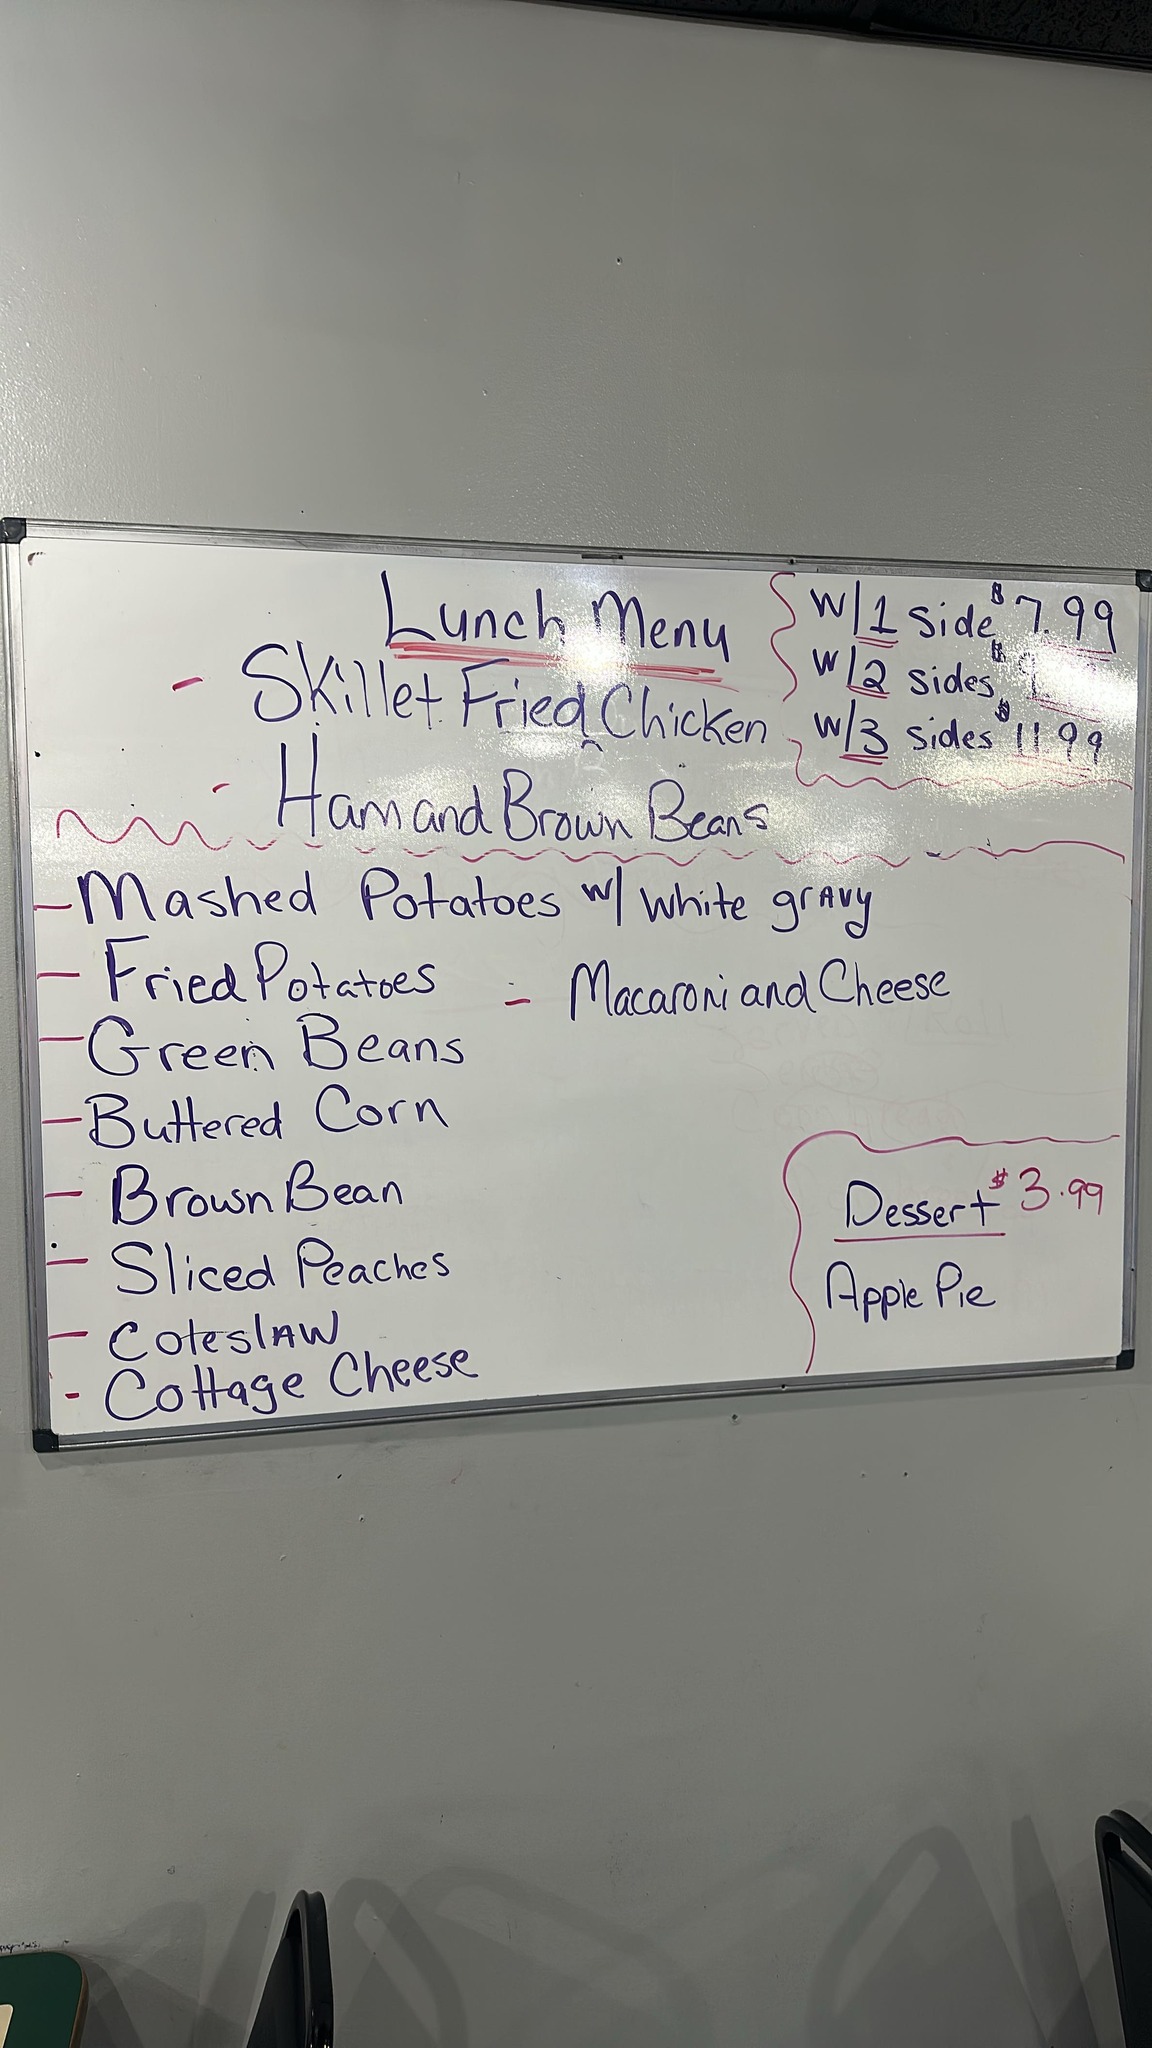 Lunch Menu
- Skillet Fried Chicken
- Ham and Brown Beans
W/1 Side $7.99
W/2 Sides
W/3 Sides $11.99
- Mashed Potatoes w/ white gravy
- Fried Potatoes
- Macaroni and Cheese
- Green Beans
- Buttered Corn
- Brown Bean
- Sliced Peaches
- Coleslaw
- Cottage Cheese
Dessert $3.99
Apple Pie